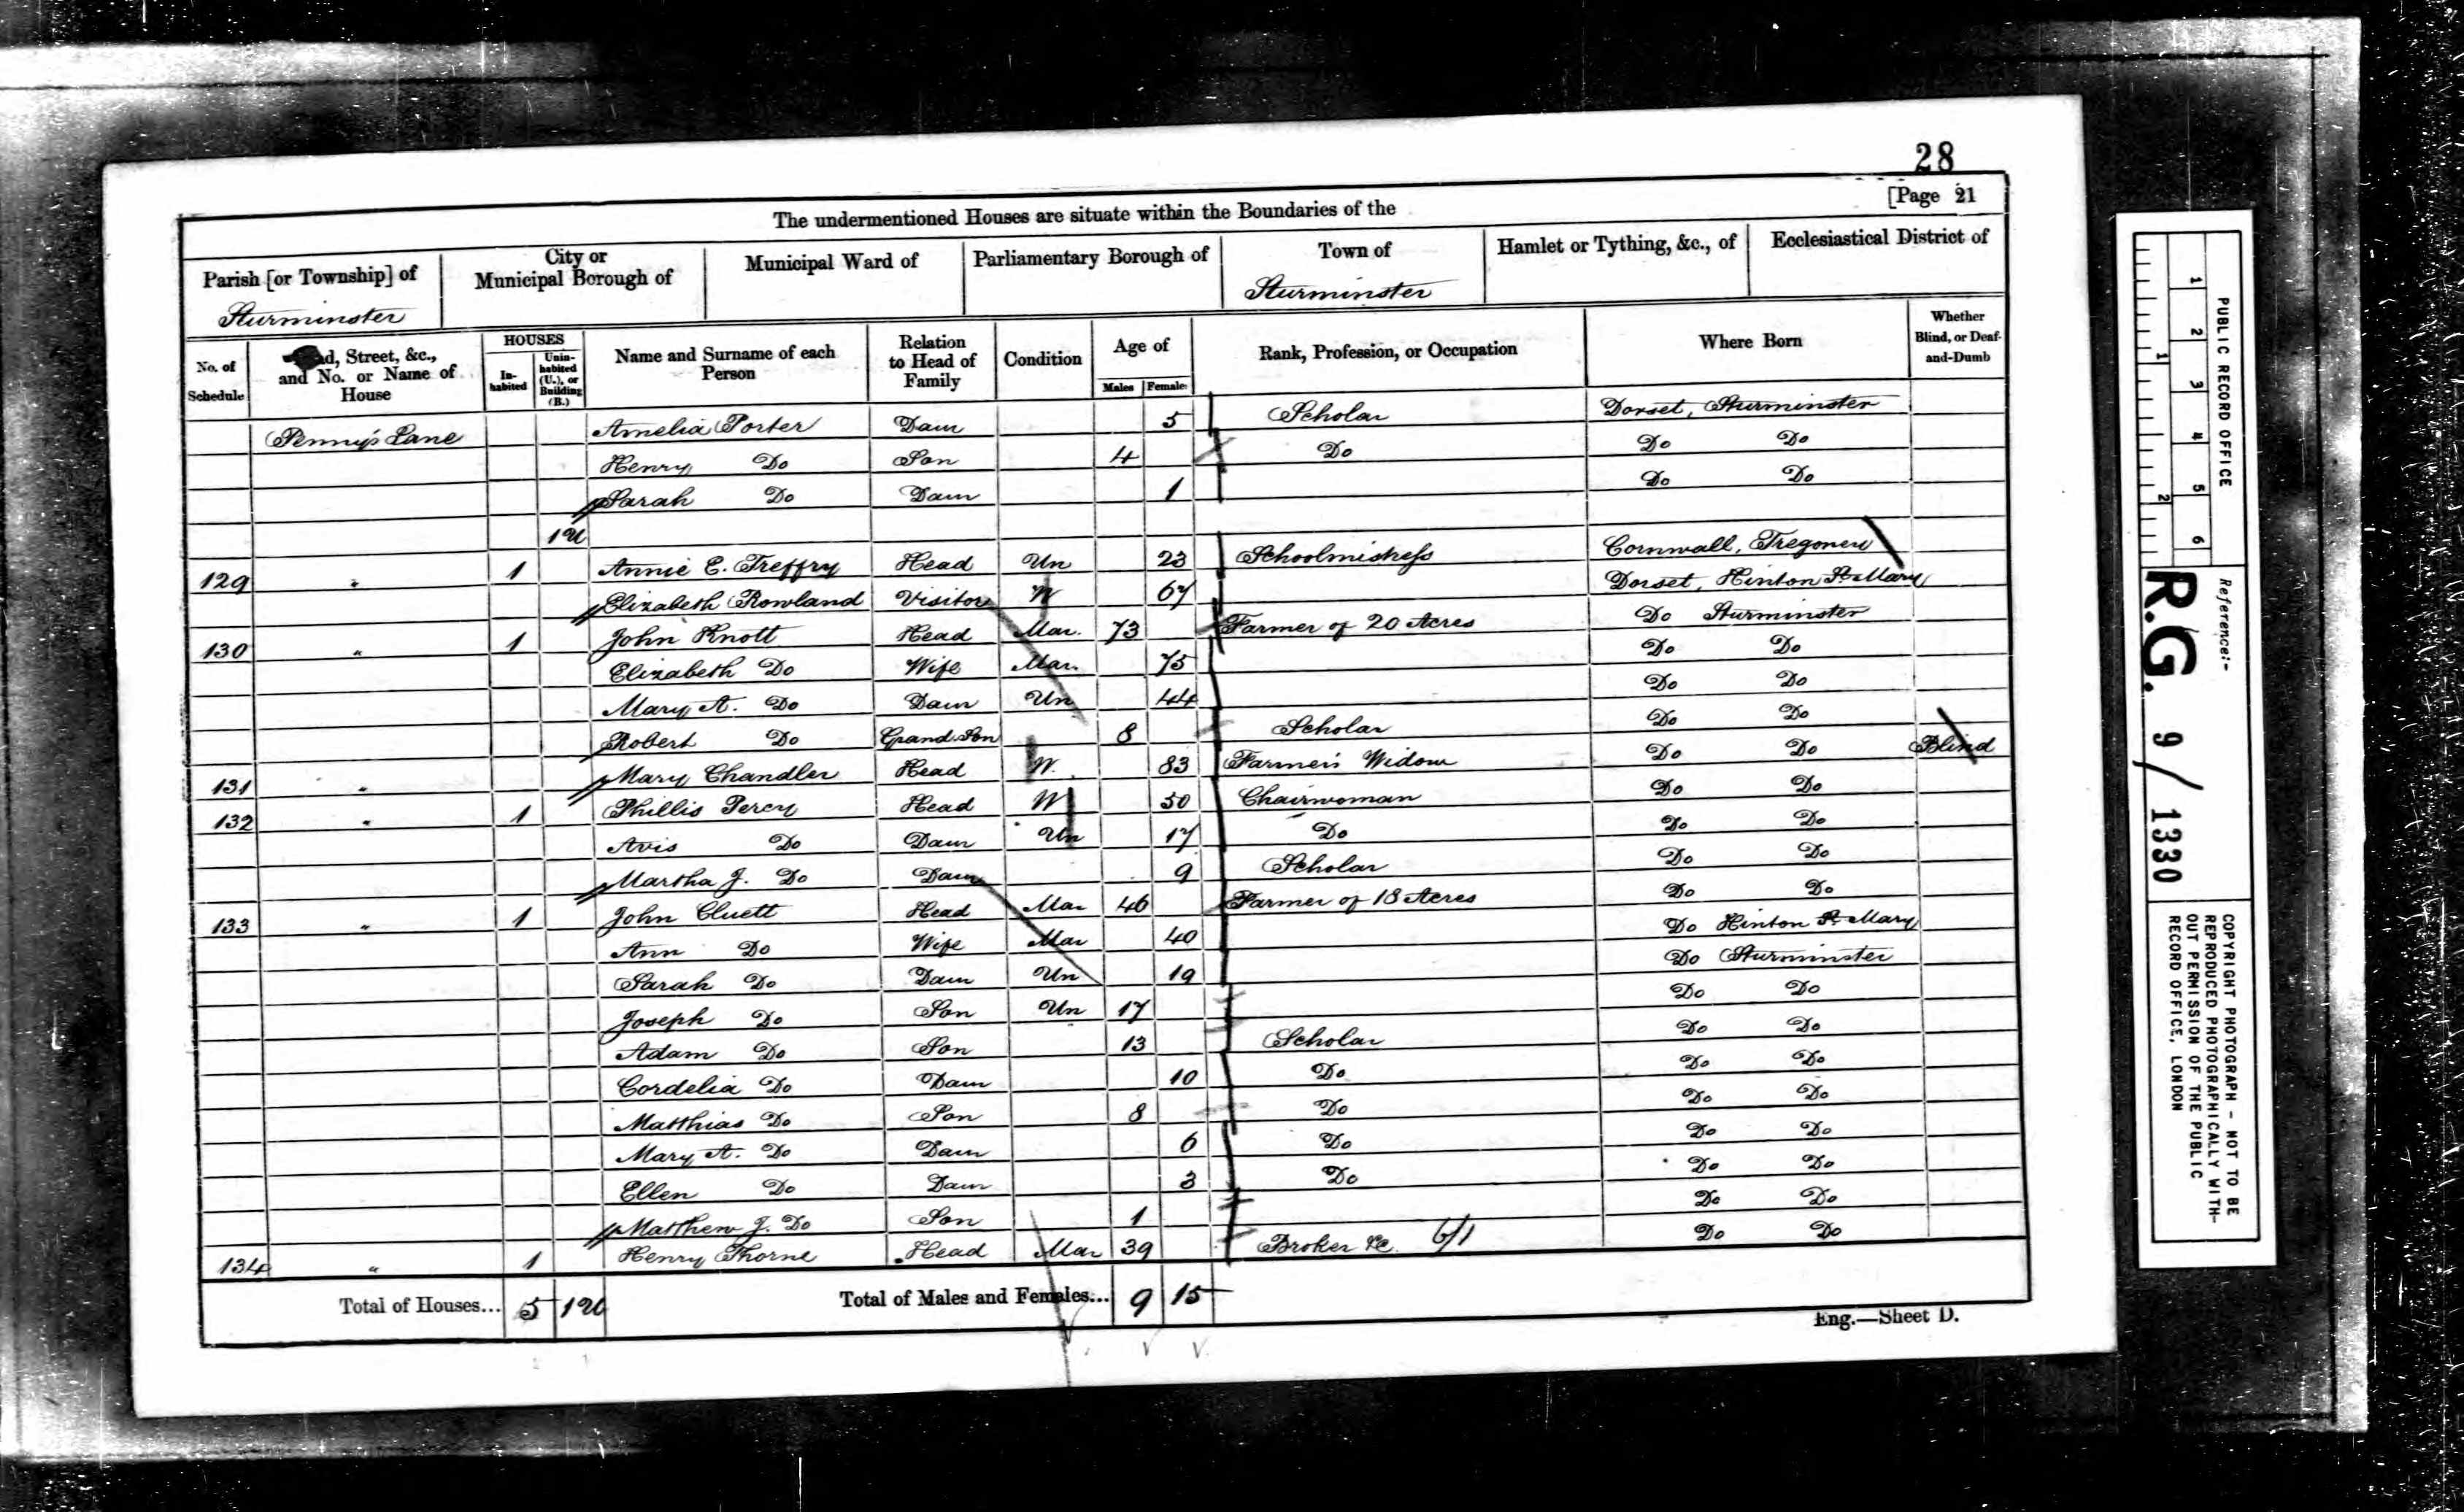 28
[Page 21
The undermentioned Houses are situate within the Boundaries of the
Parish [or Township] of City or Municipal Borough of Municipal Ward of Parliamentary Borough of Town of Hamlet or Tything, &c., of Ecclesiastical District of
Sturminster Sturminster
No. of Schedule Street, &c., and No. or Name of House HOUSES Inhabited Uninhabited (U.), or Building (B.) Name and Surname of each Person Relation to Head of Family Condition Age of Males Females Rank, Profession, or Occupation Where Born Whether Blind, or Deaf-and-Dumb
Penny's Lane Amelia Porter Daur 5 Scholar Dorset, Sturminster
Henry Do Son 4 Do Do Do
Sarah Do Daur 1 Do Do
1 U
129 " 1 Annie E. Treffry Head Un 23 Schoolmistress Cornwall, Tregoney
Elizabeth Rowland Visitor W 67 Dorset, Hinton St Mary
130 " 1 John Knott Head Mar. 73 Farmer of 20 Acres Do Sturminster
Elizabeth Do Wife Mar. 75 Do Do
Mary A. Do Daur Un 44 Do Do
Robert Do Grand Son 8 Scholar Do Do
131 " Mary Chandler Head W. 83 Farmer's Widow Do Do Blind
132 " 1 Phillis Percy Head W 50 Chairwoman Do Do
Avis Do Daur Un 17 Do Do Do
Martha J. Do Daur 9 Scholar Do Do
133 " 1 John Cluett Head Mar 46 Farmer of 18 Acres Do Do
Ann Do Wife Mar 40 Do Hinton St Mary
Sarah Do Daur Un 19 Do Sturminster
Joseph Do Son Un 17 Do Do
Adam Do Son 13 Scholar Do Do
Cordelia Do Daur 10 Do Do Do
Matthias Do Son 8 Do Do Do
Mary A. Do Daur 6 Do Do Do
Ellen Do Daur 3 Do Do Do
Matthew J. Do Son 1 Do Do
134 " 1 Henry Thorne Head Mar 39 Broker &c. 6/1 Do Do
Total of Houses... 5 1 U Total of Males and Females... 9 15
Eng.—Sheet D.
1 2 3 4 5 6
1 2
PUBLIC RECORD OFFICE
Reference:-
R.G. 9/1330
COPYRIGHT PHOTOGRAPH - NOT TO BE
REPRODUCED PHOTOGRAPHICALLY WITH-
OUT PERMISSION OF THE PUBLIC
RECORD OFFICE, LONDON